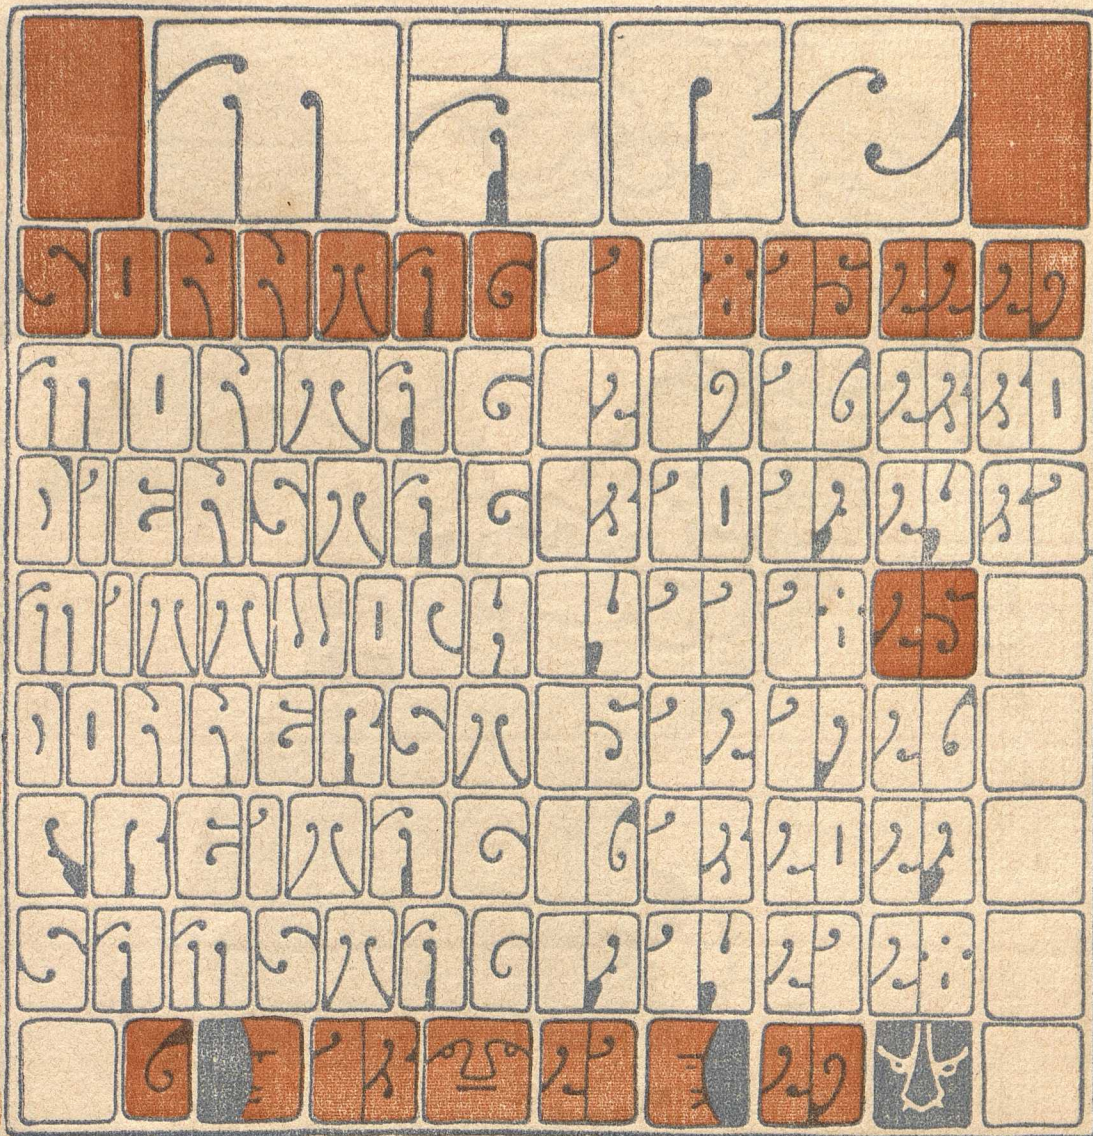 MÄRZ
SONNTAG 1 8 15 22 29
MONTAG 2 9 16 23 30
DIENSTAG 3 10 17 24 31
MITTWOCH 4 11 18 25
DONNERST 5 12 19 26
FREITAG 6 13 20 27
SAMSTAG 7 14 21 28
6 13 21 29